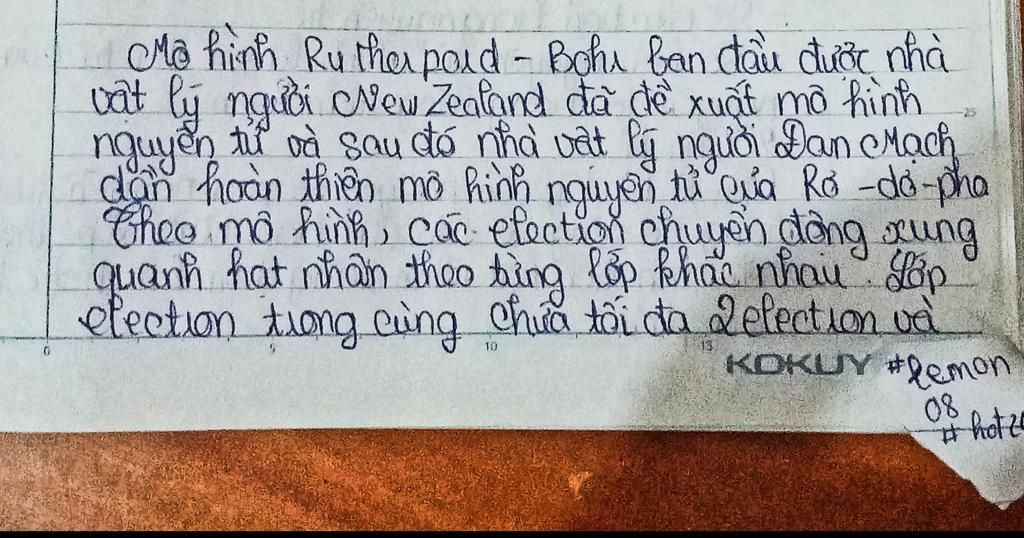 Mô hình Rutherpord - Bohr ban đầu được nhà
vật lý người New Zealand đã đề xuất mô hình
nguyên tử và sau đó nhà vật lý người Đan Mạch
dần hoàn thiện mô hình nguyên tử của Rơ -dơ-pho
Theo mô hình, các electron chuyển động xung
quanh hạt nhân theo từng lớp khác nhau. Lớp
electron trong cùng chứa tối đa 2electron và
6 9 10 13
25
KOKUY #lemon
08
# hot